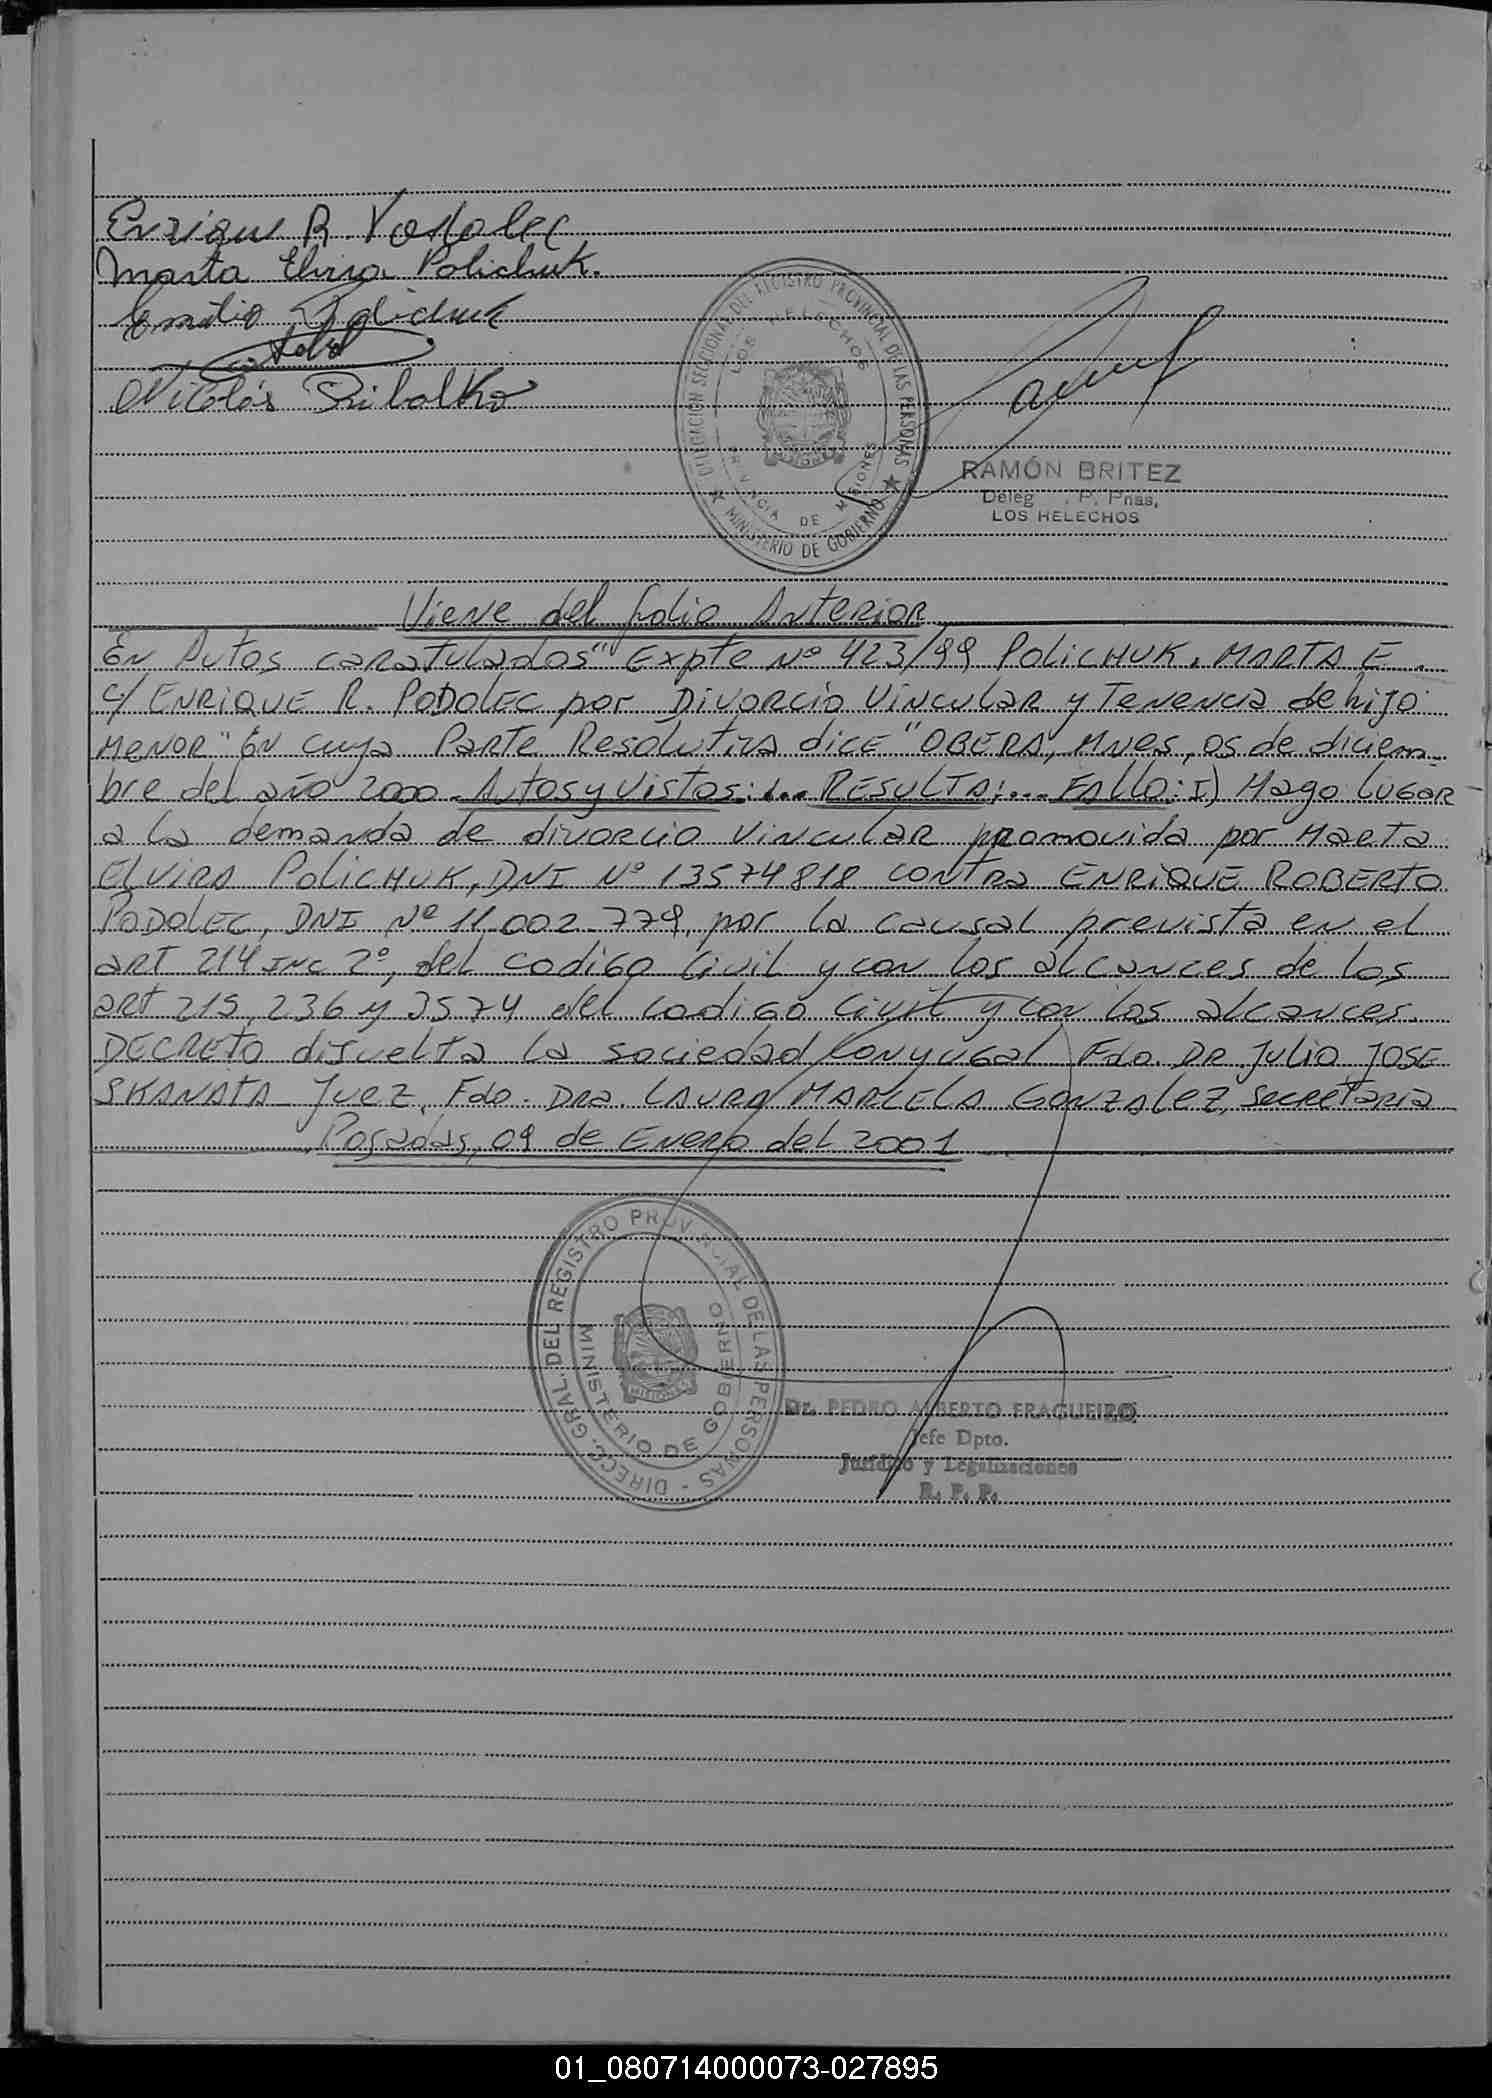 Enrique R. Podolec
Marta Elvira Polichuk.
Emilio Polichuk
Nicolás Ribalko
DELEGACION SECCIONAL DEL REGISTRO PROVINCIAL DE LAS PERSONAS
LOS HELECHOS
PROVINCIA DE MISIONES
MINISTERIO DE GOBIERNO
RAMÓN BRITEZ
Deleg P. Pnas,
LOS HELECHOS
Viene del folio Anterior
En Autos caratulados "Expte Nº 423/99 Polichuk, MARTA E.
c/ ENRIQUE R. PODOLEC por Divorcio Vincular y Tenencia de hijo
MENOR" En cuya Parte Resolutiva dice "OBERA, Mnes, 05 de diciem-
bre del año 2000. Autos y Vistos:... RESULTA:... FALLO: I) Hago lugar
a la demanda de divorcio vincular promovida por Marta
Elvira Polichuk, DNI Nº 13574818 contra ENRIQUE ROBERTO
PODOLEC, DNI Nº 11.002.779, por la causal prevista en el
art 214 inc 2º, del codigo Civil y con los alcances de los
art 215, 236 y 3574 del codigo Civil y con los alcances.
DECRETO disuelta la sociedad conyugal Fdo. DR Julio JOSE
SKANATA Juez, Fdo. Dra. LAURA MARCELA GONZALEZ, Secretaria
Posadas, 09 de Enero del 2001
DIRECC. GRAL. DEL REGISTRO PROVINCIAL DE LAS PERSONAS -
MINISTERIO DE GOBIERNO
MISIONES
Dr. PEDRO ALBERTO FRAGUEIRO
Jefe Dpto.
Jurídico y Legalizaciones
R. P. P.
01_080714000073-027895